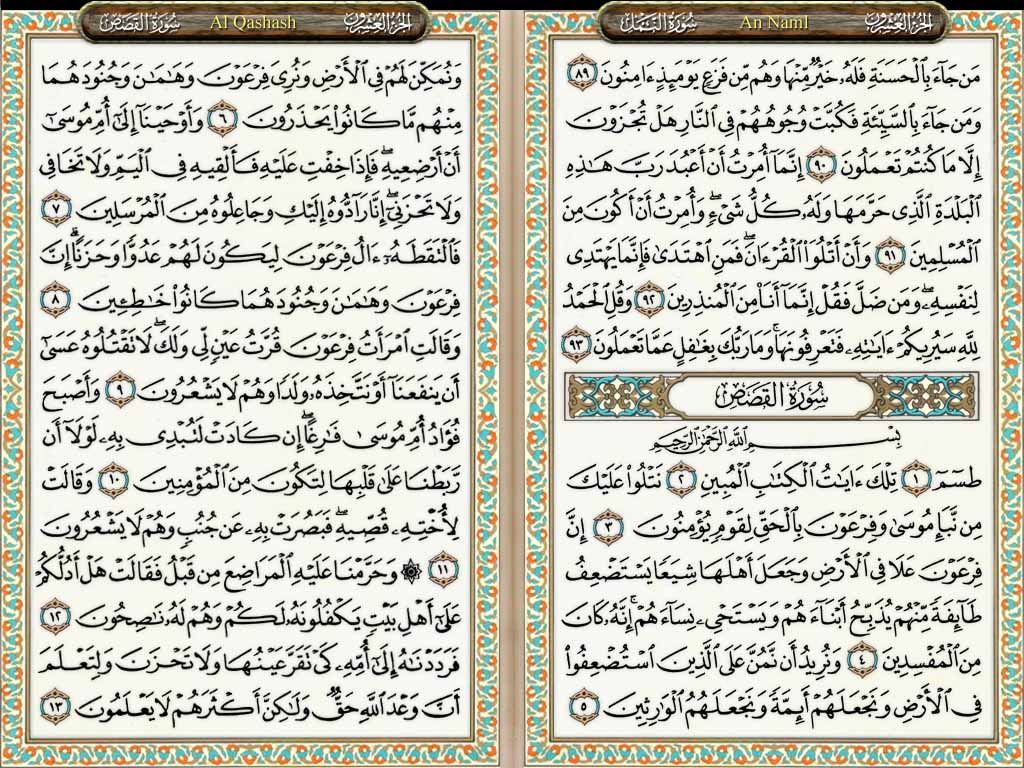 الجزء العشرون An Naml سورة النمل
من جآء بالحسنة فله خير منها وهم من فزع يومئذ ءامنون ٨٩
ومن جآء بالسيئة فكبت وجوههم في النار هل تجزون
إلا ما كنتم تعملون ٩٠ إنمآ أمرت أن أعبد رب هذه
البلدة الذي حرمها وله كل شيء وأمرت أن أكون من
المسلمين ٩١ وأن أتلوا القرءان فمن اهتدى فإنما يهتدي
لنفسه ومن ضل فقل إنمآ أنا من المنذرين ٩٢ وقل الحمد
لله سيريكم ءايته فتعرفونها وما ربك بغفل عما تعملون ٩٣
سورة القصص
بسم الله الرحمن الرحيم
طسم ١ تلك ءايت الكتب المبين ٢ نتلوا عليك
من نبإ موسى وفرعون بالحق لقوم يؤمنون ٣ إن
فرعون علا في الأرض وجعل أهلها شيعا يستضعف
طآئفة منهم يذبح أبنآءهم ويستحي نسآءهم إنه كان
من المفسدين ٤ ونريد أن نمن على الذين استضعفوا
في الأرض ونجعلهم أئمة ونجعلهم الورثين ٥
الجزء العشرون Al Qashash سورة القصص
ونمكن لهم في الأرض ونري فرعون وهمن وجنودهما
منهم ما كانوا يحذرون ٦ وأوحينآ إلى أم موسى
أن أرضعيه فإذا خفت عليه فألقيه في اليم ولا تخافي
ولا تحزني إنا رآدوه إليك وجاعلوه من المرسلين ٧
فالتقطه ءال فرعون ليكون لهم عدوا وحزنا إن
فرعون وهمن وجنودهما كانوا خطئين ٨
وقالت امرأت فرعون قرت عين لي ولك لا تقتلوه عسى
أن ينفعنآ أو نتخذه ولدا وهم لا يشعرون ٩ وأصبح
فؤاد أم موسى فرغا إن كادت لتبدي به لولآ أن
ربطنا على قلبها لتكون من المؤمنين ١٠ وقالت
لأخته قصيه فبصرت به عن جنب وهم لا يشعرون
١١ ۞ وحرمنا عليه المراضع من قبل فقالت هل أدلكم
على أهل بيت يكفلونه لكم وهم له نصحون ١٢
فرددنه إلى أمه كي تقر عينها ولا تحزن ولتعلم
أن وعد الله حق ولكن أكثرهم لا يعلمون ١٣